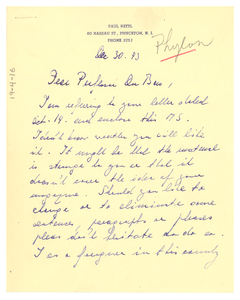 PAUL NETTL
60 NASSAU ST., PRINCETON, N. J.
PHONE 2251
Phylon
Dec 30. 43
Dear Professor Du Bois,
I am referring to your letter dated
Oct. 19. and enclose this MS.
I don't know wether you will like
it. It might be that the material
is strange to you or that it
doesn't cover the idea of your
magazine. Should you like to
change or to eliminate some
sentences, paragraphs or phrases
please don't hesitate to do so.
I as a foreigner in this country